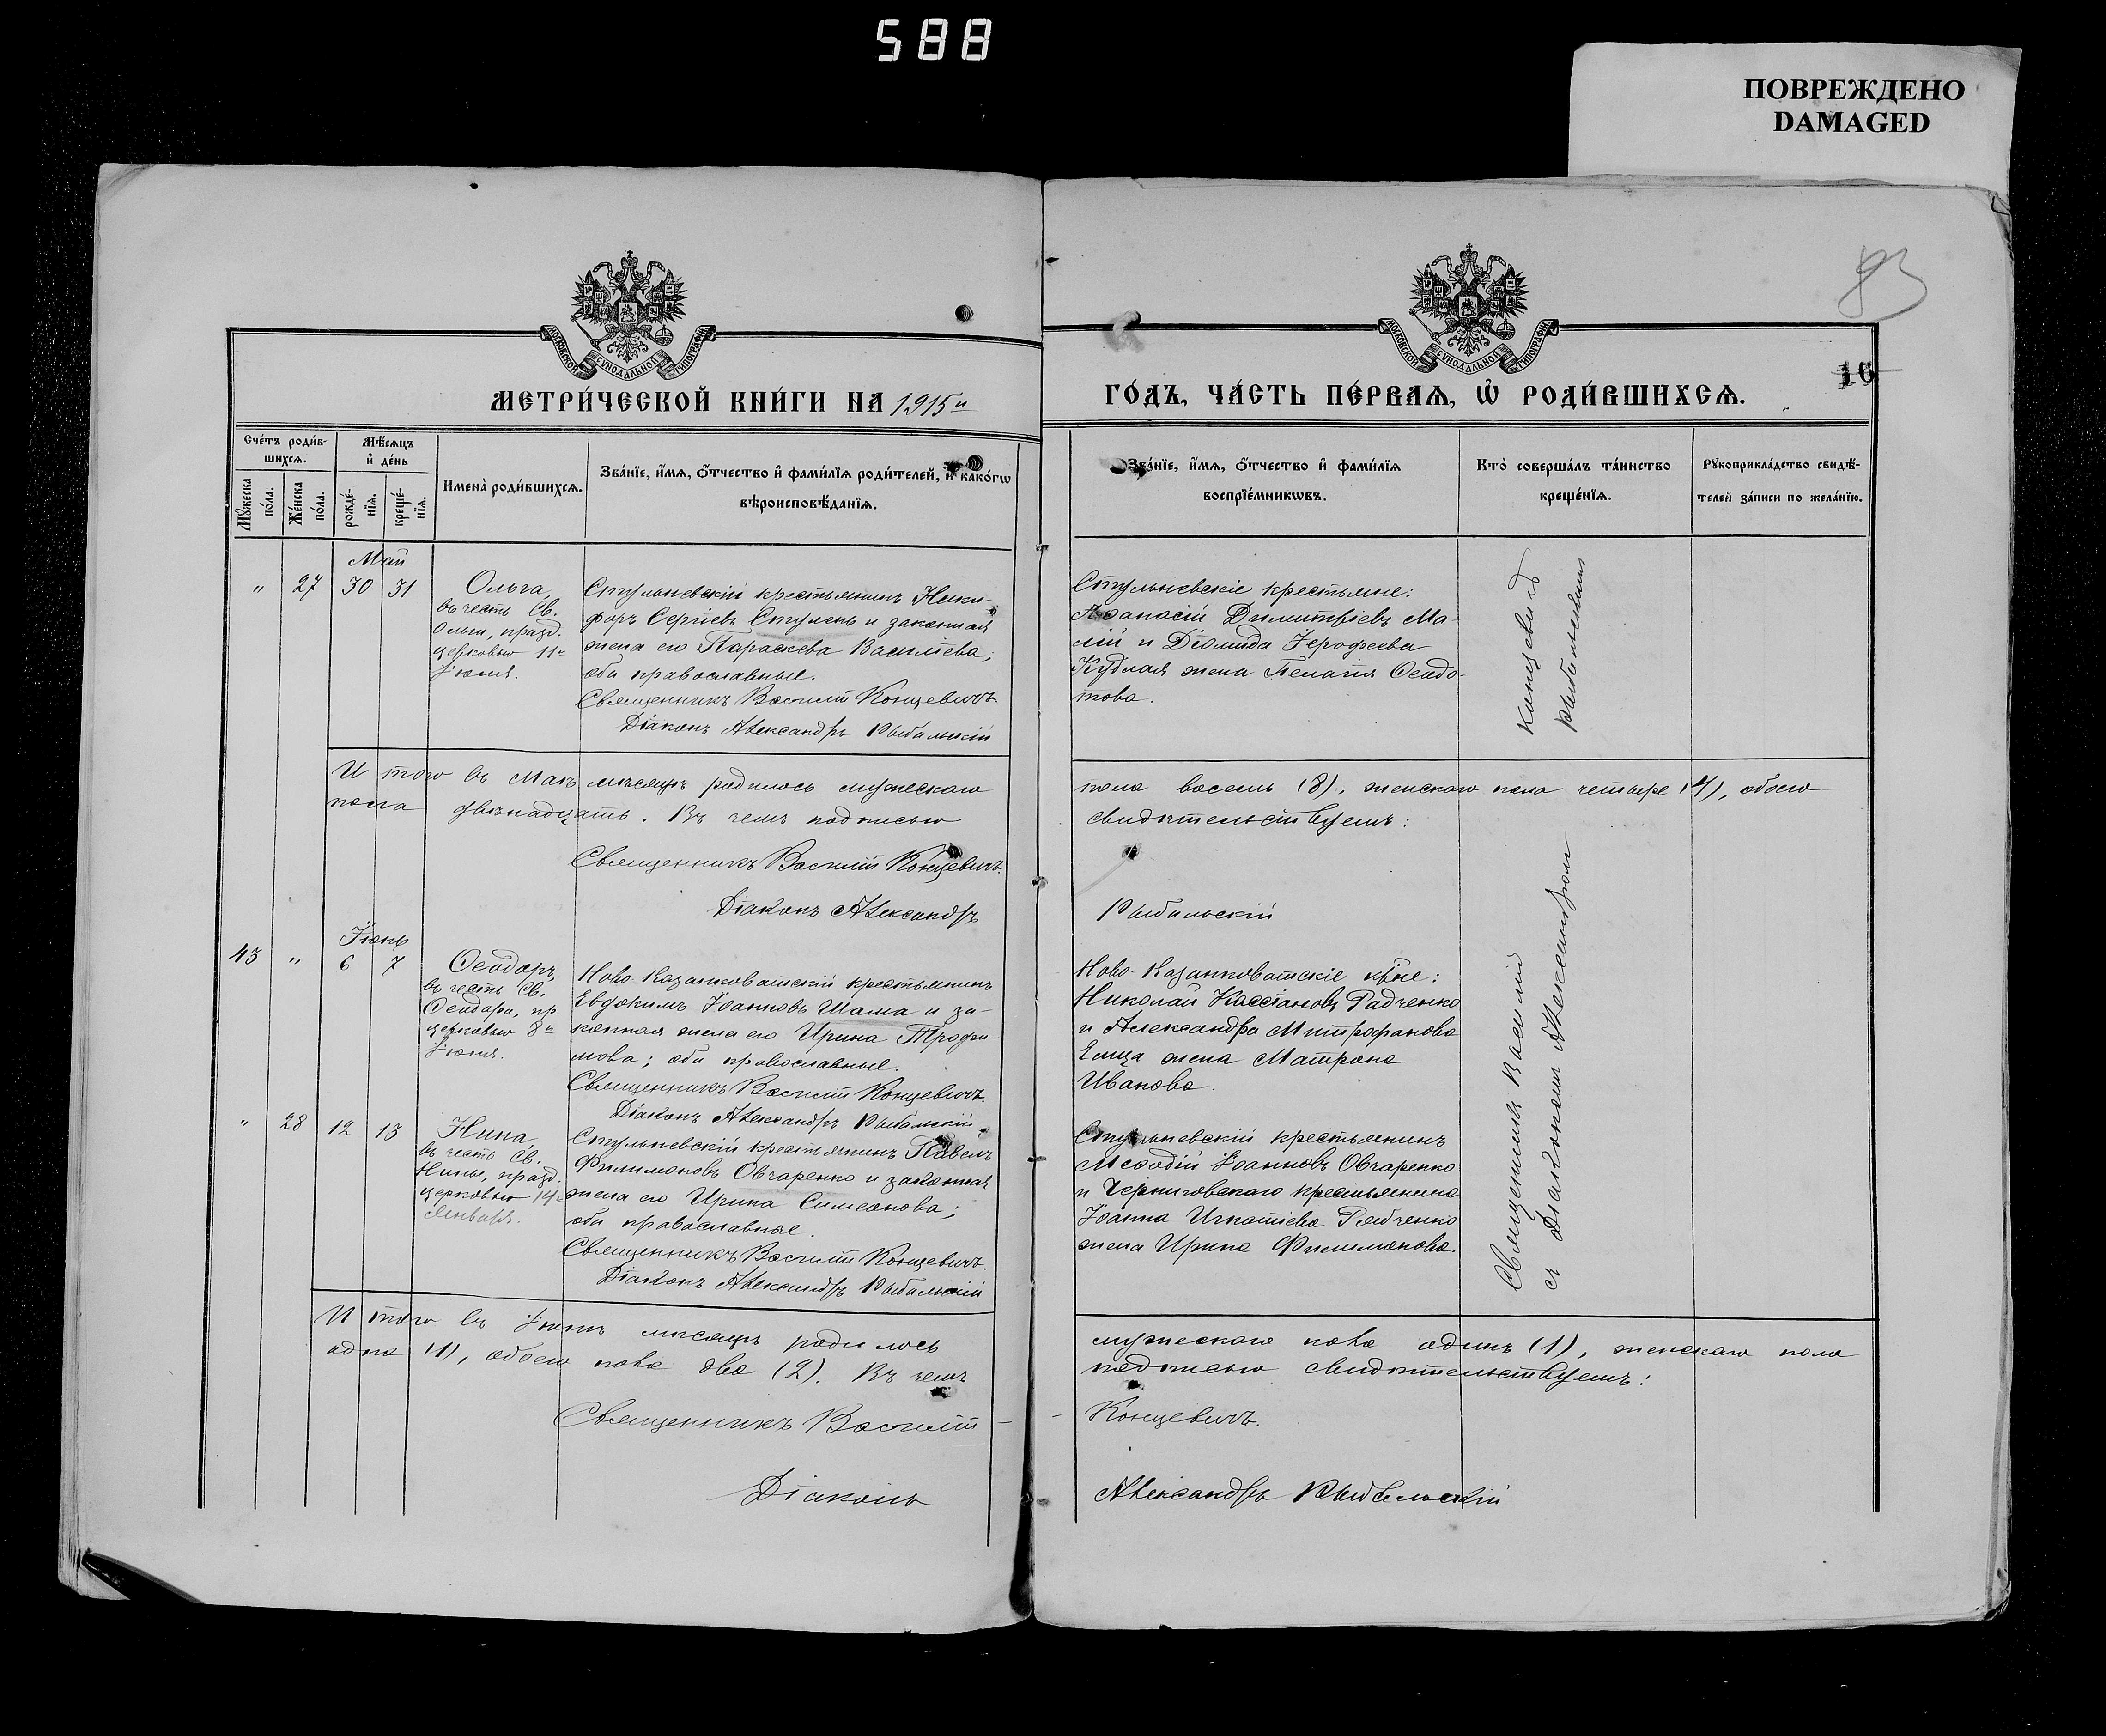 588
ПОВРЕЖДЕНО
DAMAGED
83
16
МОСКОВСКОЙ СѴНОДАЛЬНОЙ ТИПОГРАФІИ
МОСКОВСКОЙ СѴНОДАЛЬНОЙ ТИПОГРАФІИ
МЕТРИ́ЧЕСКОЙ КНИ́ГИ НА 1915й
ГО́ДЪ, ЧА́СТЬ ПЕ́РВАѦ, Ѡ҆ РОДИ́ВШИХСѦ.
Сче́тъ роди́в-
шихсѧ.
Мѣ́сѧцъ
и҆ де́нь
Мꙋ́жеска
по́ла.
Же́нска
по́ла.
рожде́-
нїѧ.
креще́-
нїѧ.
Имена̀ роди́вшихсѧ.
Зва́нїе, и҆́мѧ, ѻ҆́тчество и҆ фами́лїѧ роди́телей, и҆ како́гѡ
вѣроисповѣ́данїѧ.
Зва́нїе, и҆́мѧ, ѻ҆́тчество и҆ фами́лїѧ
воспрїе́мникѡвъ.
Кто̀ соверша́лъ та́инство
креще́нїѧ.
Рꙋкоприкла́дство свидѣ́-
телей за́писи по жела́нїю.
Май
" 27 30 31
Ольга,
въ честь Св.
Ольги, празд.
церковью 11го
Іюля.
Стульневскій крестьянинъ Ники-
форъ Сергіевъ Стулень и законная
жена его Параскева Василіева;
оба православные.
Священникъ Василій Концевичъ
Діаконъ Александръ Рыбальскій
Стульневскіе крестьяне:
Аѳанасій Димитріевъ Ма-
лій и Діомида Іерофеева
Кудлая жена Пелагія Ѳеодо-
това.
Концевичъ
Рыбальскимъ
И того въ Маѣ мѣсяцѣ родилось мужескаго
пола восемь (8), женскаго пола четыре (4), обоего
пола двѣнадцать. Въ чемъ подписью
свидѣтельствуемъ:
Священникъ Василій Концевичъ.
Діаконъ Александръ
Рыбальскій
Іюнь
43 " 6 7
Ѳеодоръ,
въ честь Св.
Ѳеодора, пр.
церковью 8й
Іюня.
Ново-Казанковатскій крестьянинъ
Евдокимъ Іоанновъ Шама и за-
конная жена его Ирина Трофи-
мова; оба православные.
Священникъ Василій Концевичъ.
Діаконъ Александръ Рыбальскій
Ново-Казанковатскіе кр̃не:
Николай Кассіановъ Радченко
и Александра Митрофанова
жена Матрона
Иванова.
" 28 12 13
Нина,
въ честь Св.
Нины, празд.
церковью 14го
Января.
Стульневскій крестьянинъ Павелъ
Филимоновъ Овчаренко и законная
жена его Ирина Симеонова;
оба православные.
Священникъ Василій Концевичъ.
Діаконъ Александръ Рыбальскій
Стульневскій крестьянинъ
Меѳодій Іоанновъ Овчаренко
и Черниговскаго крестьянина
Іоанна Игнатіева Рябченко
жена Ирина Филимонова.
Священникъ Василій
съ Діакономъ Александромъ
И того въ Іюнѣ мѣсяцѣ родилось
мужескаго пола одинъ (1), женскаго пола
одна (1), обоего пола два (2). Въ чемъ
подписью свидѣтельствуемъ:
Священникъ Василій
Концевичъ.
Діаконъ
Александръ Рыбальскій